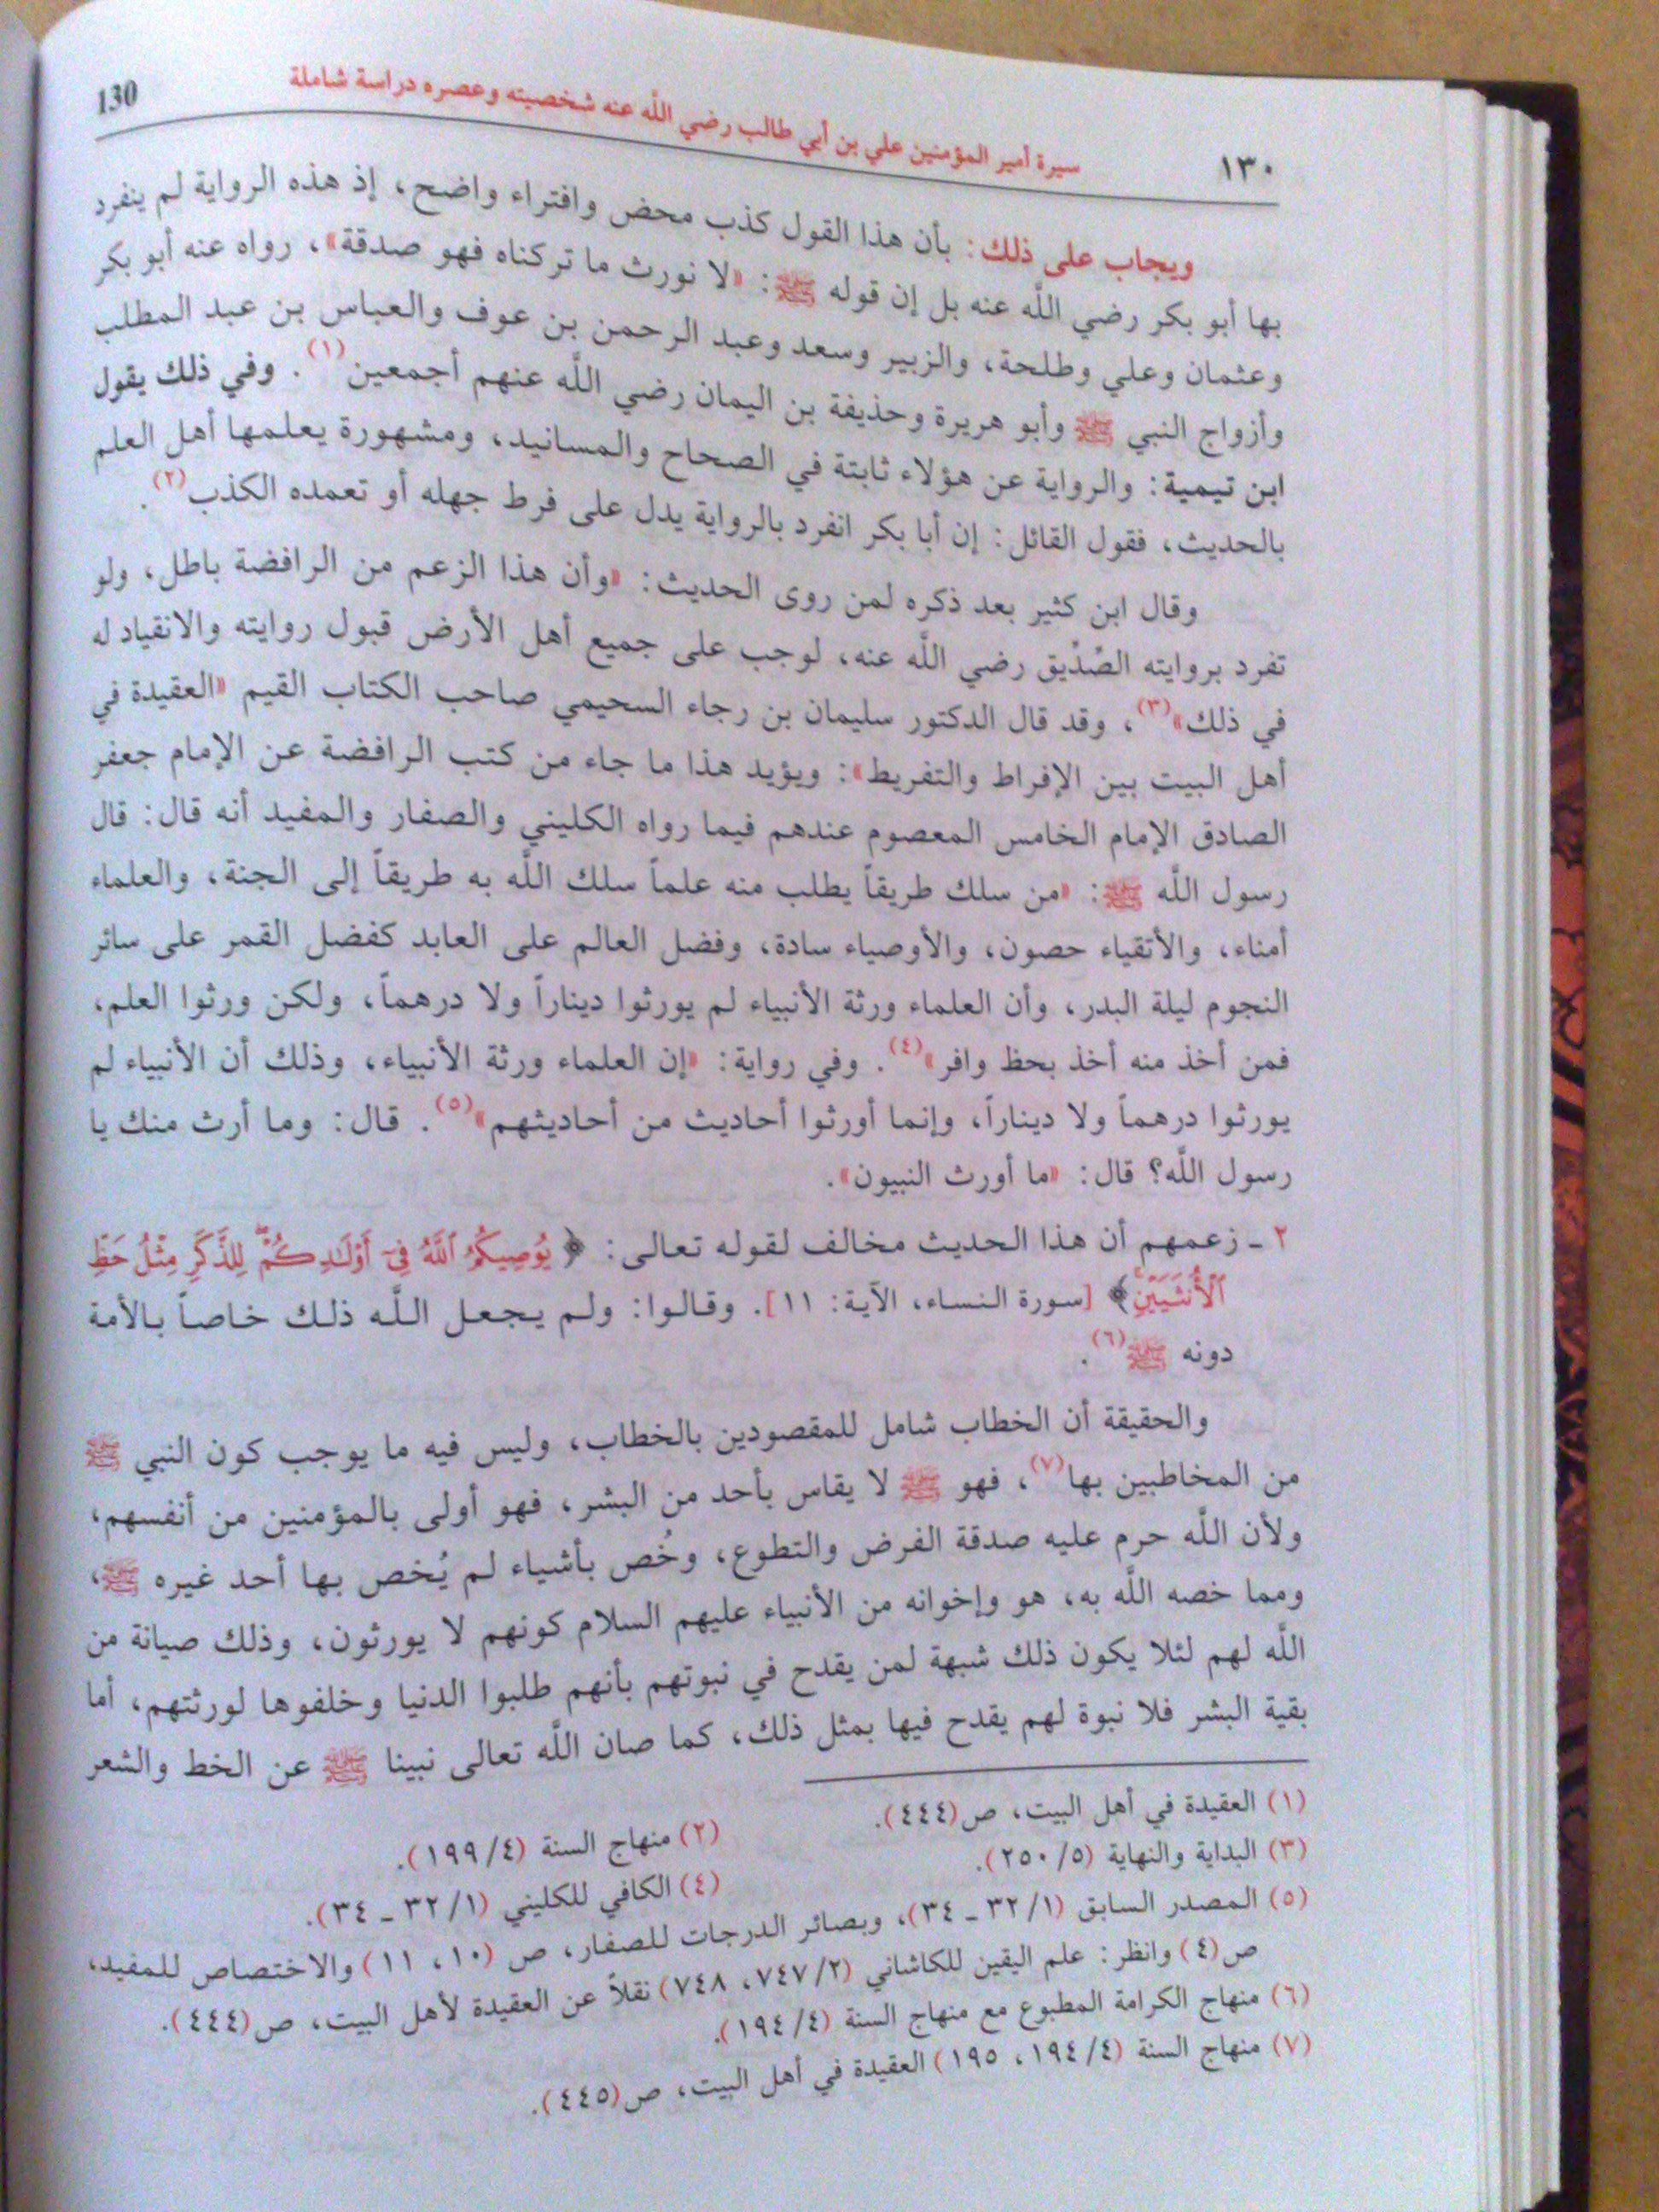 130
سيرة أمير المؤمنين علي بن أبي طالب رضي اللَّه عنه شخصيته وعصره دراسة شاملة
١٣٠
ويجاب على ذلك: بأن هذا القول كذب محض وافتراء واضح، إذ هذه الرواية لم ينفرد
بها أبو بكر رضي اللَّه عنه بل إن قوله ﷺ: «لا نورث ما تركناه فهو صدقة»، رواه عنه أبو بكر
وعثمان وعلي وطلحة، والزبير وسعد وعبد الرحمن بن عوف والعباس بن عبد المطلب
وأزواج النبي ﷺ وأبو هريرة وحذيفة بن اليمان رضي اللَّه عنهم أجمعين(١). وفي ذلك يقول
ابن تيمية: والرواية عن هؤلاء ثابتة في الصحاح والمسانيد، ومشهورة يعلمها أهل العلم
بالحديث، فقول القائل: إن أبا بكر انفرد بالرواية يدل على فرط جهله أو تعمده الكذب(٢).
وقال ابن كثير بعد ذكره لمن روى الحديث: «وأن هذا الزعم من الرافضة باطل، ولو
تفرد بروايته الصِّدِّيق رضي اللَّه عنه، لوجب على جميع أهل الأرض قبول روايته والانقياد له
في ذلك»(٣)، وقد قال الدكتور سليمان بن رجاء السحيمي صاحب الكتاب القيم «العقيدة في
أهل البيت بين الإفراط والتفريط»: ويؤيد هذا ما جاء من كتب الرافضة عن الإمام جعفر
الصادق الإمام الخامس المعصوم عندهم فيما رواه الكليني والصفار والمفيد أنه قال: قال
رسول اللَّه ﷺ: «من سلك طريقاً يطلب منه علماً سلك اللَّه به طريقاً إلى الجنة، والعلماء
أمناء، والأتقياء حصون، والأوصياء سادة، وفضل العالم على العابد كفضل القمر على سائر
النجوم ليلة البدر، وأن العلماء ورثة الأنبياء لم يورثوا ديناراً ولا درهماً، ولكن ورثوا العلم،
فمن أخذ منه أخذ بحظ وافر»(٤). وفي رواية: «إن العلماء ورثة الأنبياء، وذلك أن الأنبياء لم
يورثوا درهماً ولا ديناراً، وإنما أورثوا أحاديث من أحاديثهم»(٥). قال: وما أرث منك يا
رسول اللَّه؟ قال: «ما أورث النبيون».
٢ ـ زعمهم أن هذا الحديث مخالف لقوله تعالى: ﴿يُوصِيكُمُ ٱللَّهُ فِىٓ أَوْلَـٰدِكُمْ ۖ لِلذَّكَرِ مِثْلُ حَظِّ
ٱلْأُنثَيَيْنِ ۚ﴾ [سورة النساء، الآية: ١١]. وقالوا: ولم يجعل اللَّه ذلك خاصاً بالأمة
دونه ﷺ(٦).
والحقيقة أن الخطاب شامل للمقصودين بالخطاب، وليس فيه ما يوجب كون النبي ﷺ
من المخاطبين بها(٧)، فهو ﷺ لا يقاس بأحد من البشر، فهو أولى بالمؤمنين من أنفسهم،
ولأن اللَّه حرم عليه صدقة الفرض والتطوع، وخُص بأشياء لم يُخص بها أحد غيره ﷺ،
ومما خصه اللَّه به، هو وإخوانه من الأنبياء عليهم السلام كونهم لا يورثون، وذلك صيانة من
اللَّه لهم لئلا يكون ذلك شبهة لمن يقدح في نبوتهم بأنهم طلبوا الدنيا وخلفوها لورثتهم، أما
بقية البشر فلا نبوة لهم يقدح فيها بمثل ذلك، كما صان اللَّه تعالى نبينا ﷺ عن الخط والشعر
(١) العقيدة في أهل البيت، ص(٤٤٤).
(٢) منهاج السنة (٤/١٩٩).
(٣) البداية والنهاية (٥/٢٥٠).
(٤) الكافي للكليني (١/٣٢ ـ ٣٤).
(٥) المصدر السابق (١/٣٢ ـ ٣٤)، وبصائر الدرجات للصفار، ص (١٠، ١١) والاختصاص للمفيد،
ص(٤) وانظر: علم اليقين للكاشاني (٢/٧٤٧، ٧٤٨) نقلاً عن العقيدة لأهل البيت، ص(٤٤٤).
(٦) منهاج الكرامة المطبوع مع منهاج السنة (٤/١٩٤).
(٧) منهاج السنة (٤/١٩٤، ١٩٥) العقيدة في أهل البيت، ص(٤٤٥).